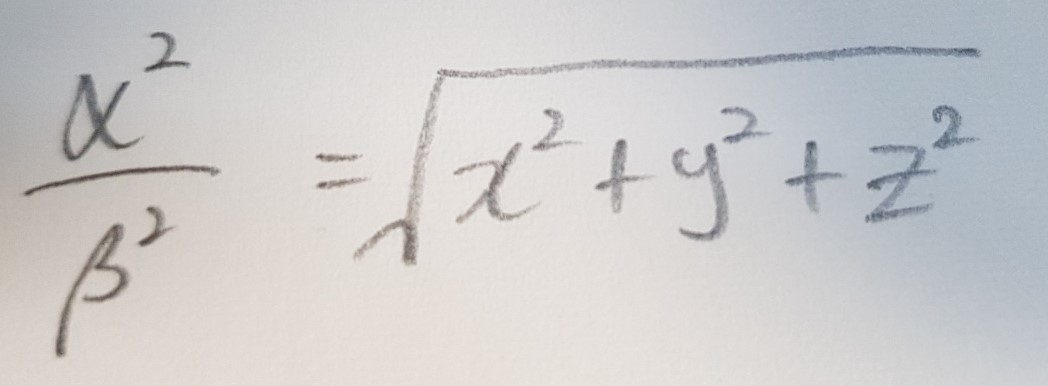 α²/β² = √(x² + y² + z²)